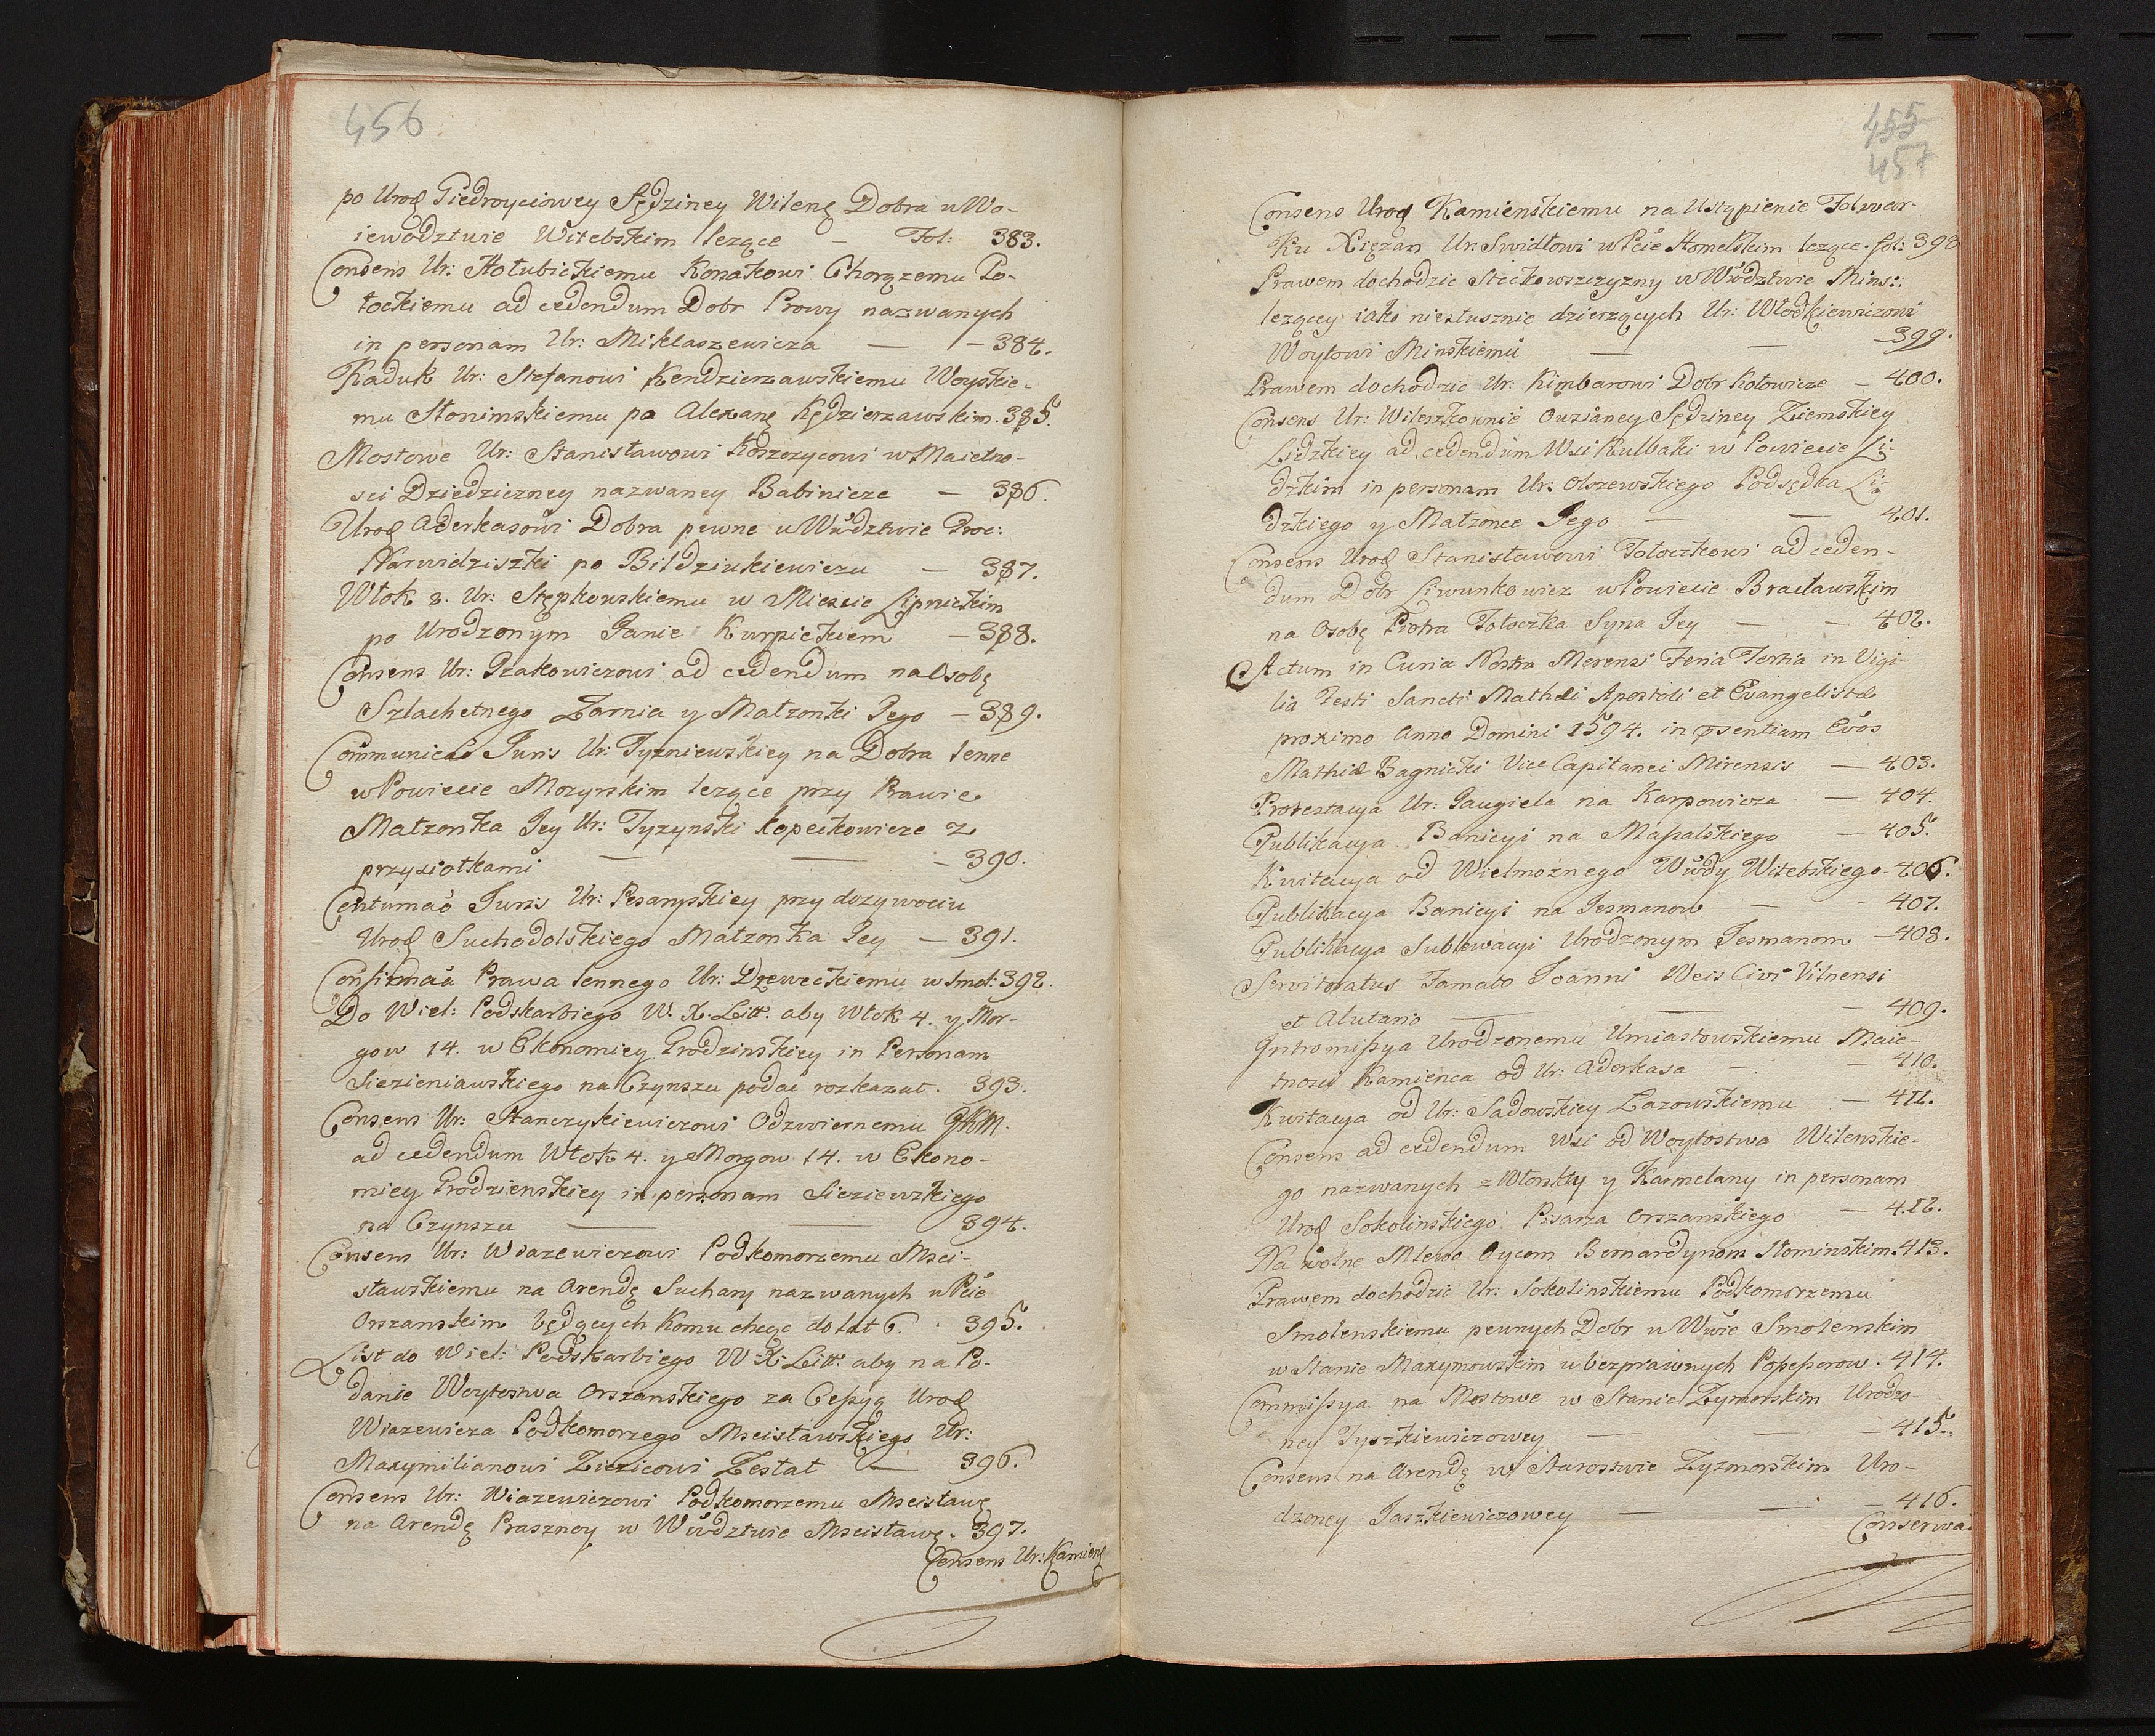 456
po Urod Giedroyciowey Sędziney Wilenę Dobra w Wo-
iewodztwie Witebskim leząće — Fol: 383.
Consens Ur: Hołubickiemu Konatowi Chorązemu Po-
łockiemu ad cedendum Dobr Prowy nazwanych
in personam Ur: Miklaszewicza — — 384.
Kaduk Ur: Stefanowi Kendzierzawskiemu Woyskie-
mu Słonimskiemu po Alexanę Kędzierzawskim. 385.
Mostowe Ur: Stanisławowi Koszczycowi w Maietno-
sci Dziedziczney nazwaney Babinicze — 386.
Urod Aderkasowi Dobra pewne w Wwdztwie Troc:
Narwidziszki po Bildziukiewiczu — 387.
Włok 2. Ur: Stępkowskiemu w Miescie Lipnickim
po Urodzonym Janie Kurpickiem — 388.
Consens Ur: Rzakowiczowi ad cedendum na Osobę
Szlachetnego Zornia y Małzonki Jego — 389.
Communicao Juris Ur: Tyzniewskiey na Dobra lenne
w Powiecie Mozyrskim leząće przy Prawie
Małzonka Jey Ur: Tyzynski Kopeikowicze z
przysiołkami — — — 390.
Centumao Juris Ur: Pesarpskiey przy dozywociu
Urod Suchodolskiego Małzonka Jey — 391.
Confirmao Prawa lennego Ur: Drzeweckiemu w Smol: 392.
Do Wiel: Podskarbiego W. X. Litt: aby Włok 4. y Mor-
gow 14. w Ekonomiey Grodzinskiey in Personam
Siezieniawskiego na Czynszu podać rozkazał. 393.
Consens Ur: Stanczykiewiczowi Odzwiernemu JKM.
ad cedendum Włok 4. y Morgow 14. w Ekono-
miey Grodzienskiey in personam Sieziewskiego
na Czynszu — — 394.
Consens Ur: Wiazewiczowi Podkomorzemu Msci-
sławskiemu na Arendę Suchary nazwanych w Pcie
Orszanskim będących komu chcąc do lat 6. . 395.
List do Wiel: Podskarbiego W. X. Litt: aby na Po-
danie Woytostwa Orszanskiego za Cessyą Urod
Wiazewicza Podkomorzego Mscisławskiego Ur:
Maxymilianowi Ziezicowi Zesłał — 396.
Consens Ur: Wiazewiczowi Podkomorzemu Mscisławę
na Arendę Praszney w Wwdztwie Mscisławę. 397.
Consens Ur: Kamienę
455
457
Consens Urod Kamienskiemu na Ustąpienie Folwar-
ku Xięzan Ur: Swidłowi w Pcie Homelskim leząće. fol: 398
Prawem dochodzic Steckowszczyzny w Wwdztwie Mins:
leząćey iako niesłusznie dzierzących Ur: Włodkiewiczowi
Woytowi Minskiemu — — — 399.
Prawem dochodzic Ur: Kimbarowi Dobr Kotowicze — 400.
Consens Ur: Wileszkownie Owsianey Sędziney Ziemskiey
Lidzkiey ad cedendum Wsi Kulbaki w Powiecie Li-
dzkim in personam Ur: Olszewskiego Podsędka Li-
dzkiego y Małzonce Jego — — 401.
Consens Urod Stanisławowi Tołoczkowi ad ceden-
dum Dobr Liwunkowicz w Powiecie Bracławskim
na Osobę Piotra Tołoczka Syna Jey — — 402.
Actum in Curia Nostra Merensi Feria Tertia in Vigi-
lia Festi Sancti Mathæi Apostoli et Evangelistæ
proximo Anno Domini 1594. in psentiam Evos
Mathiæ Bagnicki Vice Capitanei Mirensis — 403.
Protestacya Ur: Jaugiela na Karpowicza — 404.
Publikacya Banicyi na Massalskiego — 405.
Kwitacya od Wielmoznego Wwdy Witebskiego - 406.
Publikacya Banicyi na Jesmanow — — 407.
Publikacya Sublewacyi Urodzonym Jesmanom — 408.
Servitoratus Famato Joanni Weis Civi Vilnensi
et Alutario — — — 409.
Intromissya Urodzonemu Umiastowskiemu Maie-
tnosci Kamienca od Ur: Aderkasa — — 410.
Kwitacya od Ur: Sadowskiey Lazowskiemu — 411.
Consens ad cedendum Wsi od Woytostwa Wilenskie-
go nazwanych z Włorskły y Karmelany in personam
Urod Sokolinskiego Pisarza Orszanskiego — 412.
Na wolne Mlewo Oycom Bernardynom Słominskim. 413.
Prawem dochodzic Ur: Sokolinskiemu Podkomorzemu
Smolenskiemu pewnych Dobr w Wwie Smolenskim
w Stanie Maxymowskim u bezprawnych Possessorow. 414.
Commissya na Mostowe w Stanie Zymorskim Urodzo-
ney Tyszkiewiczowey — — — 415.
Consens na Arendę w Starostwie Zyzmorskim Uro-
dzoney Jaszkiewiczowey — — — 416.
Conserva-